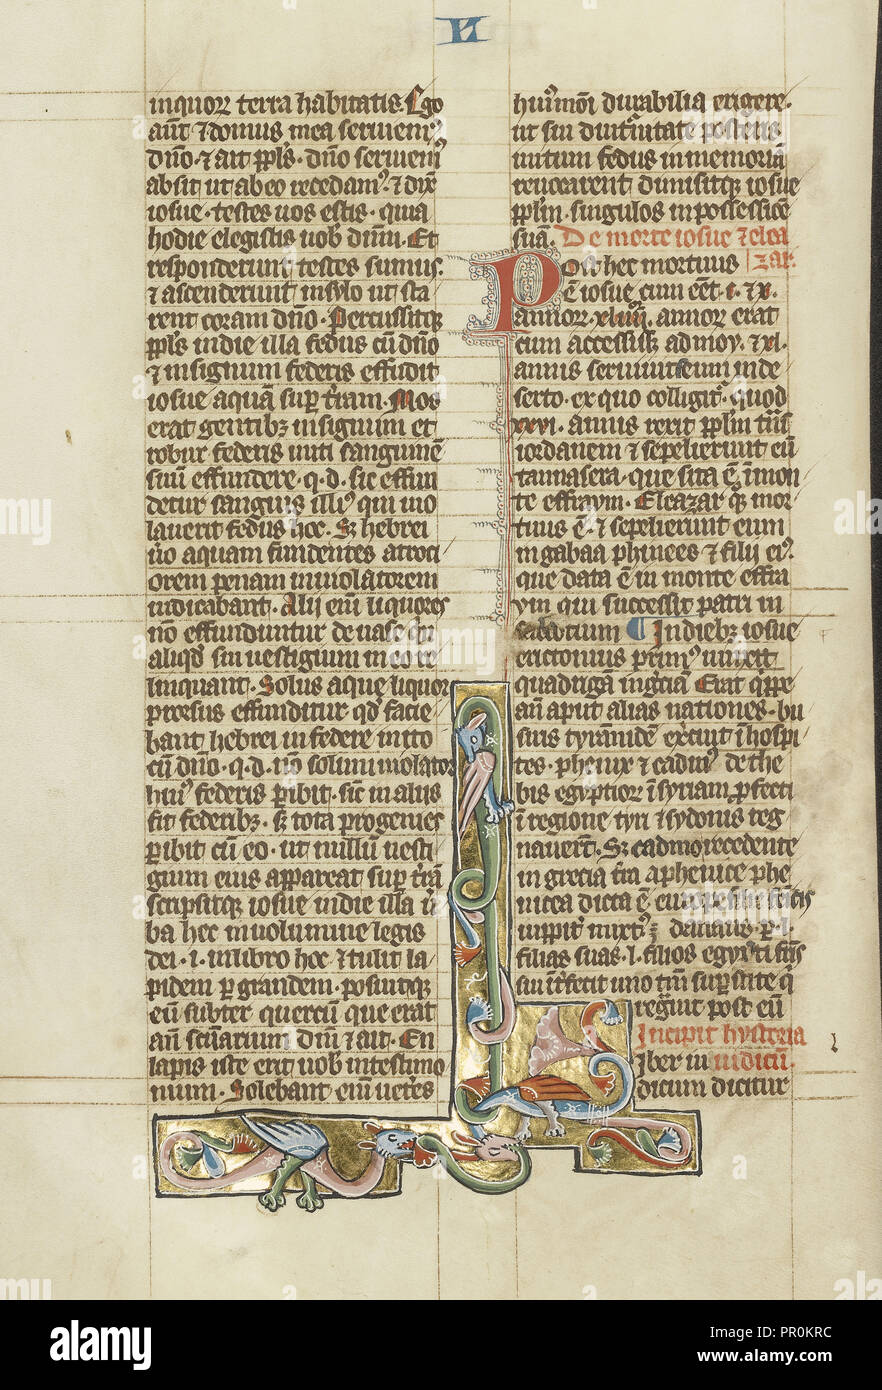 N
inquorꝝ terra habitatis. Ego
aūt ⁊ domus mea seruiemꝰ
dn̄o. ⁊ ait ppl̄s. dn̄o seruiemꝰ
absit ut ab eo recedamꝰ. ⁊ dix̄
iosue. testes uos estis. quia
hodie elegistis uob̄ dn̄m. Et
responderunt testes sumus.
⁊ ascenderunt in sylo ut sta
rent coram dn̄o. Percussitqꝫ
ppl̄s in die illa fedus cū dn̄o
⁊ in signum federis effudit
iosue aquā sup̄ t̄ram. Mos
erat gentibꝫ in signum et
robur federis initi sanguinē
suū effundere. q. d. sic effun
detur sanguis illiꝰ qui uio
lauerit fedus hoc. Sꝫ hebrei
ū̄o aquam fundentes atroci
orem penam in uiolatorem
iudicabant. Alij eni liquores
nō effunduntur de uase qn̄
aliqd̄ sui uestigium in eo re
linquant. Solus aque liquor
prorsus effunditur qd̄ facie
bant hebrei in federe inito
cū dn̄o. q. d. nō solum uiolator
huiꝰ federis ꝑibit. sic in alijs
fit federibꝫ. sꝫ tota progenies
ꝑibit cū eo. ut nullū uesti
gium eius appareat sup̄ t̄rā
scripsitqꝫ iosue in die illa ūer
ba hec in uolumine legis
dei. i. in libro hoc ⁊ tulit la
pidem ꝑgrandem. posuitqꝫ
eū subter quercū que erat
an̄ sc̄uarium dn̄i ⁊ ait. En
lapis iste erit uob̄ in testimo
nium. Solebant eni ueteres
huiꝰmōi durabilia erigere.
ut sui diuturnitate posteris
initum fedus in memoriā
reuocarent dimisitqꝫ iosue
ppl̄m. singulos in possessiōē
suā. De morte iosue ⁊ elea
zar.
Post hec mortuus
ē iosue cum eēt .c. ⁊ x.
annorꝝ. xliiii. annorꝝ erat
cum accessissꝫ ad moy. ⁊ xl.
annis seruiuit eum in de
serto. ex quo colligit̄. quod
xxvi. annis rexit ppl̄m t̄ns
iordanem ⁊ sepelierunt eū
tamnasera. que sita ē ī mon
te effraym. Eleazar qꝫ mor
tuus ē. ⁊ sepelierunt eum
in gabaa phinees ⁊ filij eiꝰ.
que data ē in monte effra
ym qui successit patri in
sacerdotium ¶ In diebꝫ iosue
erictonius primꝰ iunxit
quadrigā in grecia Erat qͥppe
an̄ aput alias nationes. bu
siris tyrānidē exercuit ī hospi
tes. phenix ⁊ cadmꝰ de the
bis egyptiorꝝ ī syriam ꝓfecti
ī regione tyri ⁊ sydonis reg
nauert̄. Sꝫ cadmo recedente
in grecia t̄ra a phenice phe
nicea dicta ē
danaus ꝑ .l.
filias suas .l. filios egypti fr̄is
sui int̄fecit uno tm̄ sup̄stite qͥ
regnauit post eū
Incipit hystoria
iudicū.
Liber iu
dicum dicitur
alamy
PR0KRC
www.alamy.com